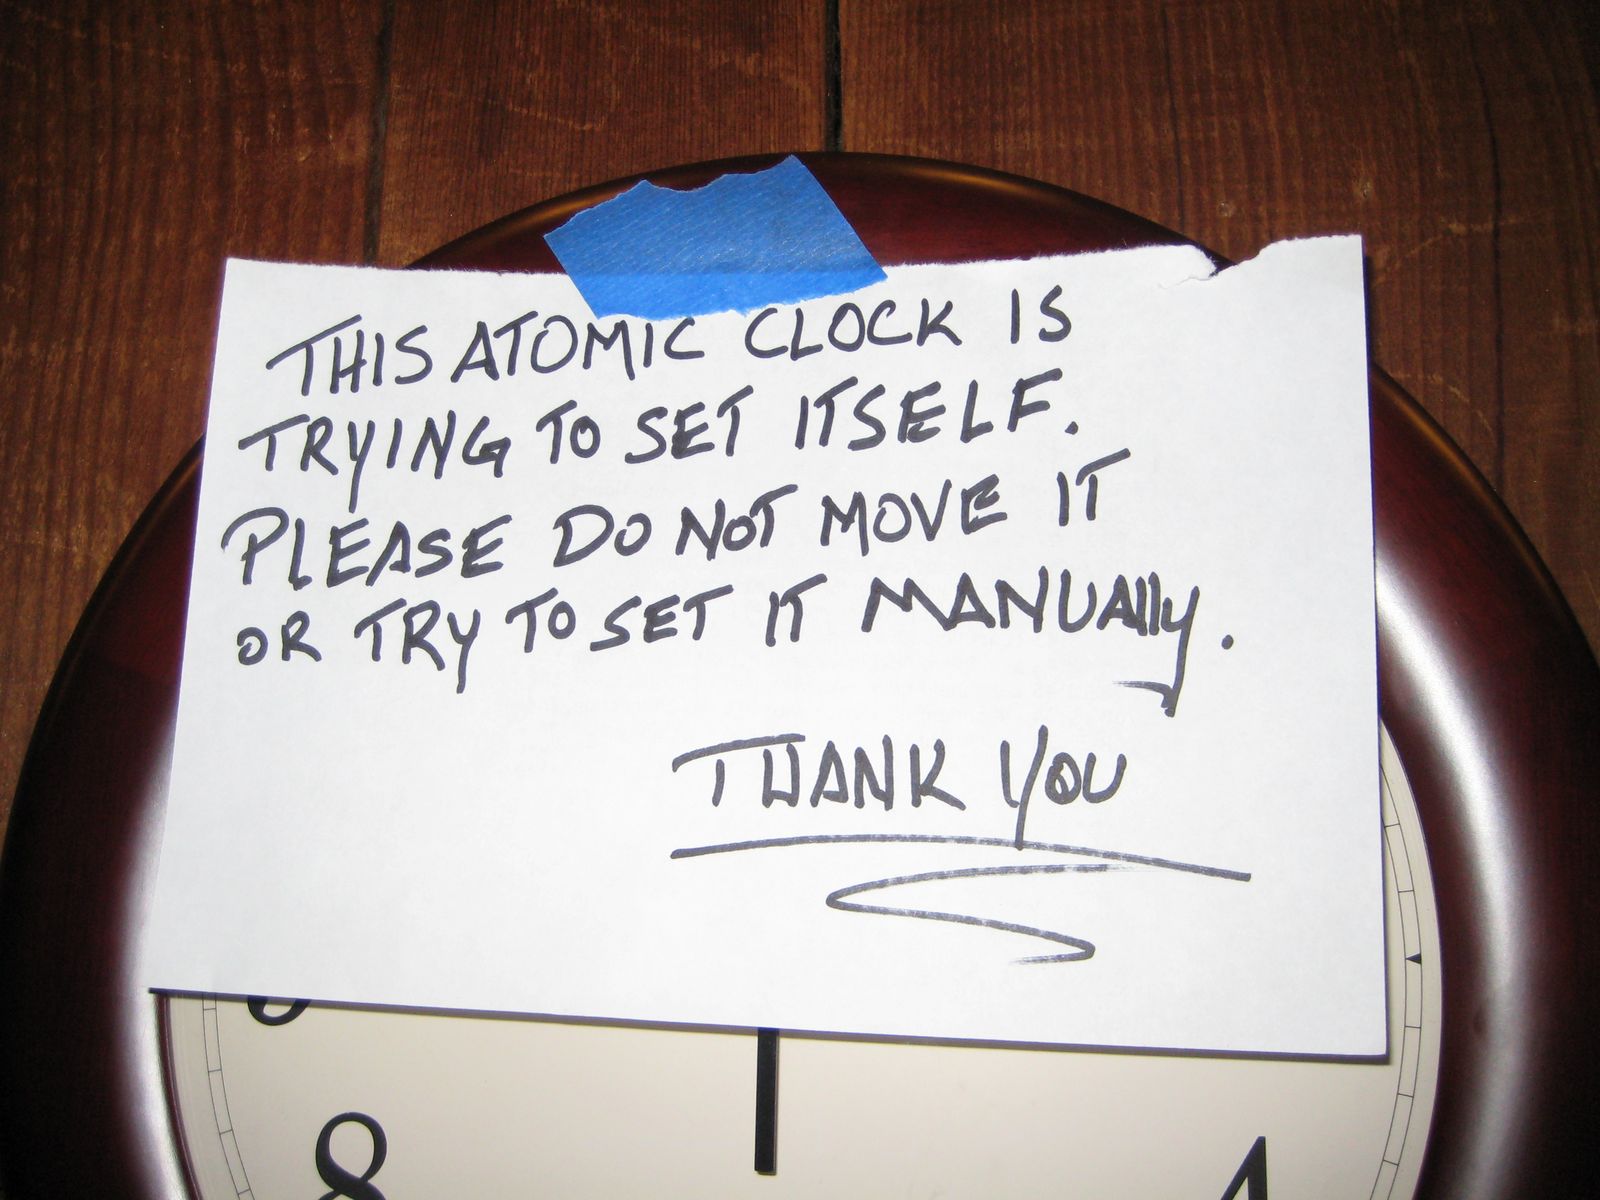 THIS ATOMIC CLOCK IS
TRYING TO SET ITSELF.
PLEASE DO NOT MOVE IT
OR TRY TO SET IT MANUAlly.
THANK YOU
8 4